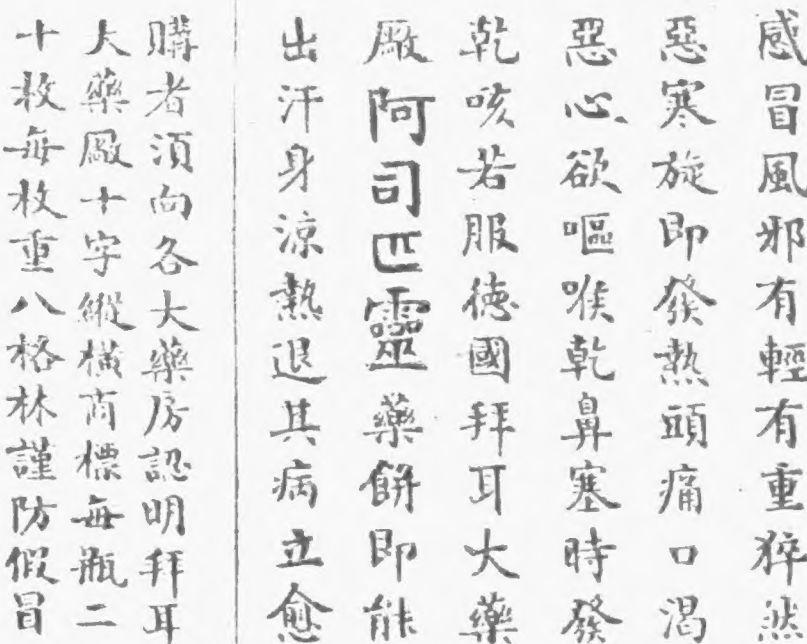 感冒風邪有輕有重猝然
惡寒旋即發熱頭痛口渴
惡心欲嘔喉乾鼻塞時發
乾咳若服德國拜耳大藥
廠阿司匹靈藥餅即能
出汗身涼熱退其病立愈
購者須向各大藥房認明拜耳
大藥廠十字縱橫商標每瓶二
十枚每枚重八格林謹防假冒